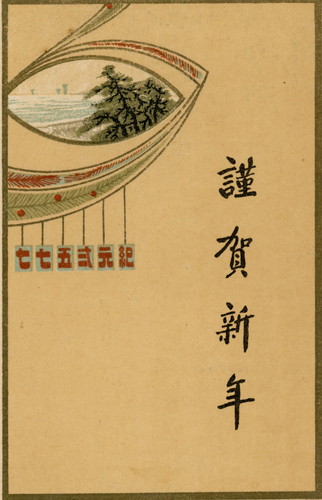 謹賀新年
紀元弐五七七